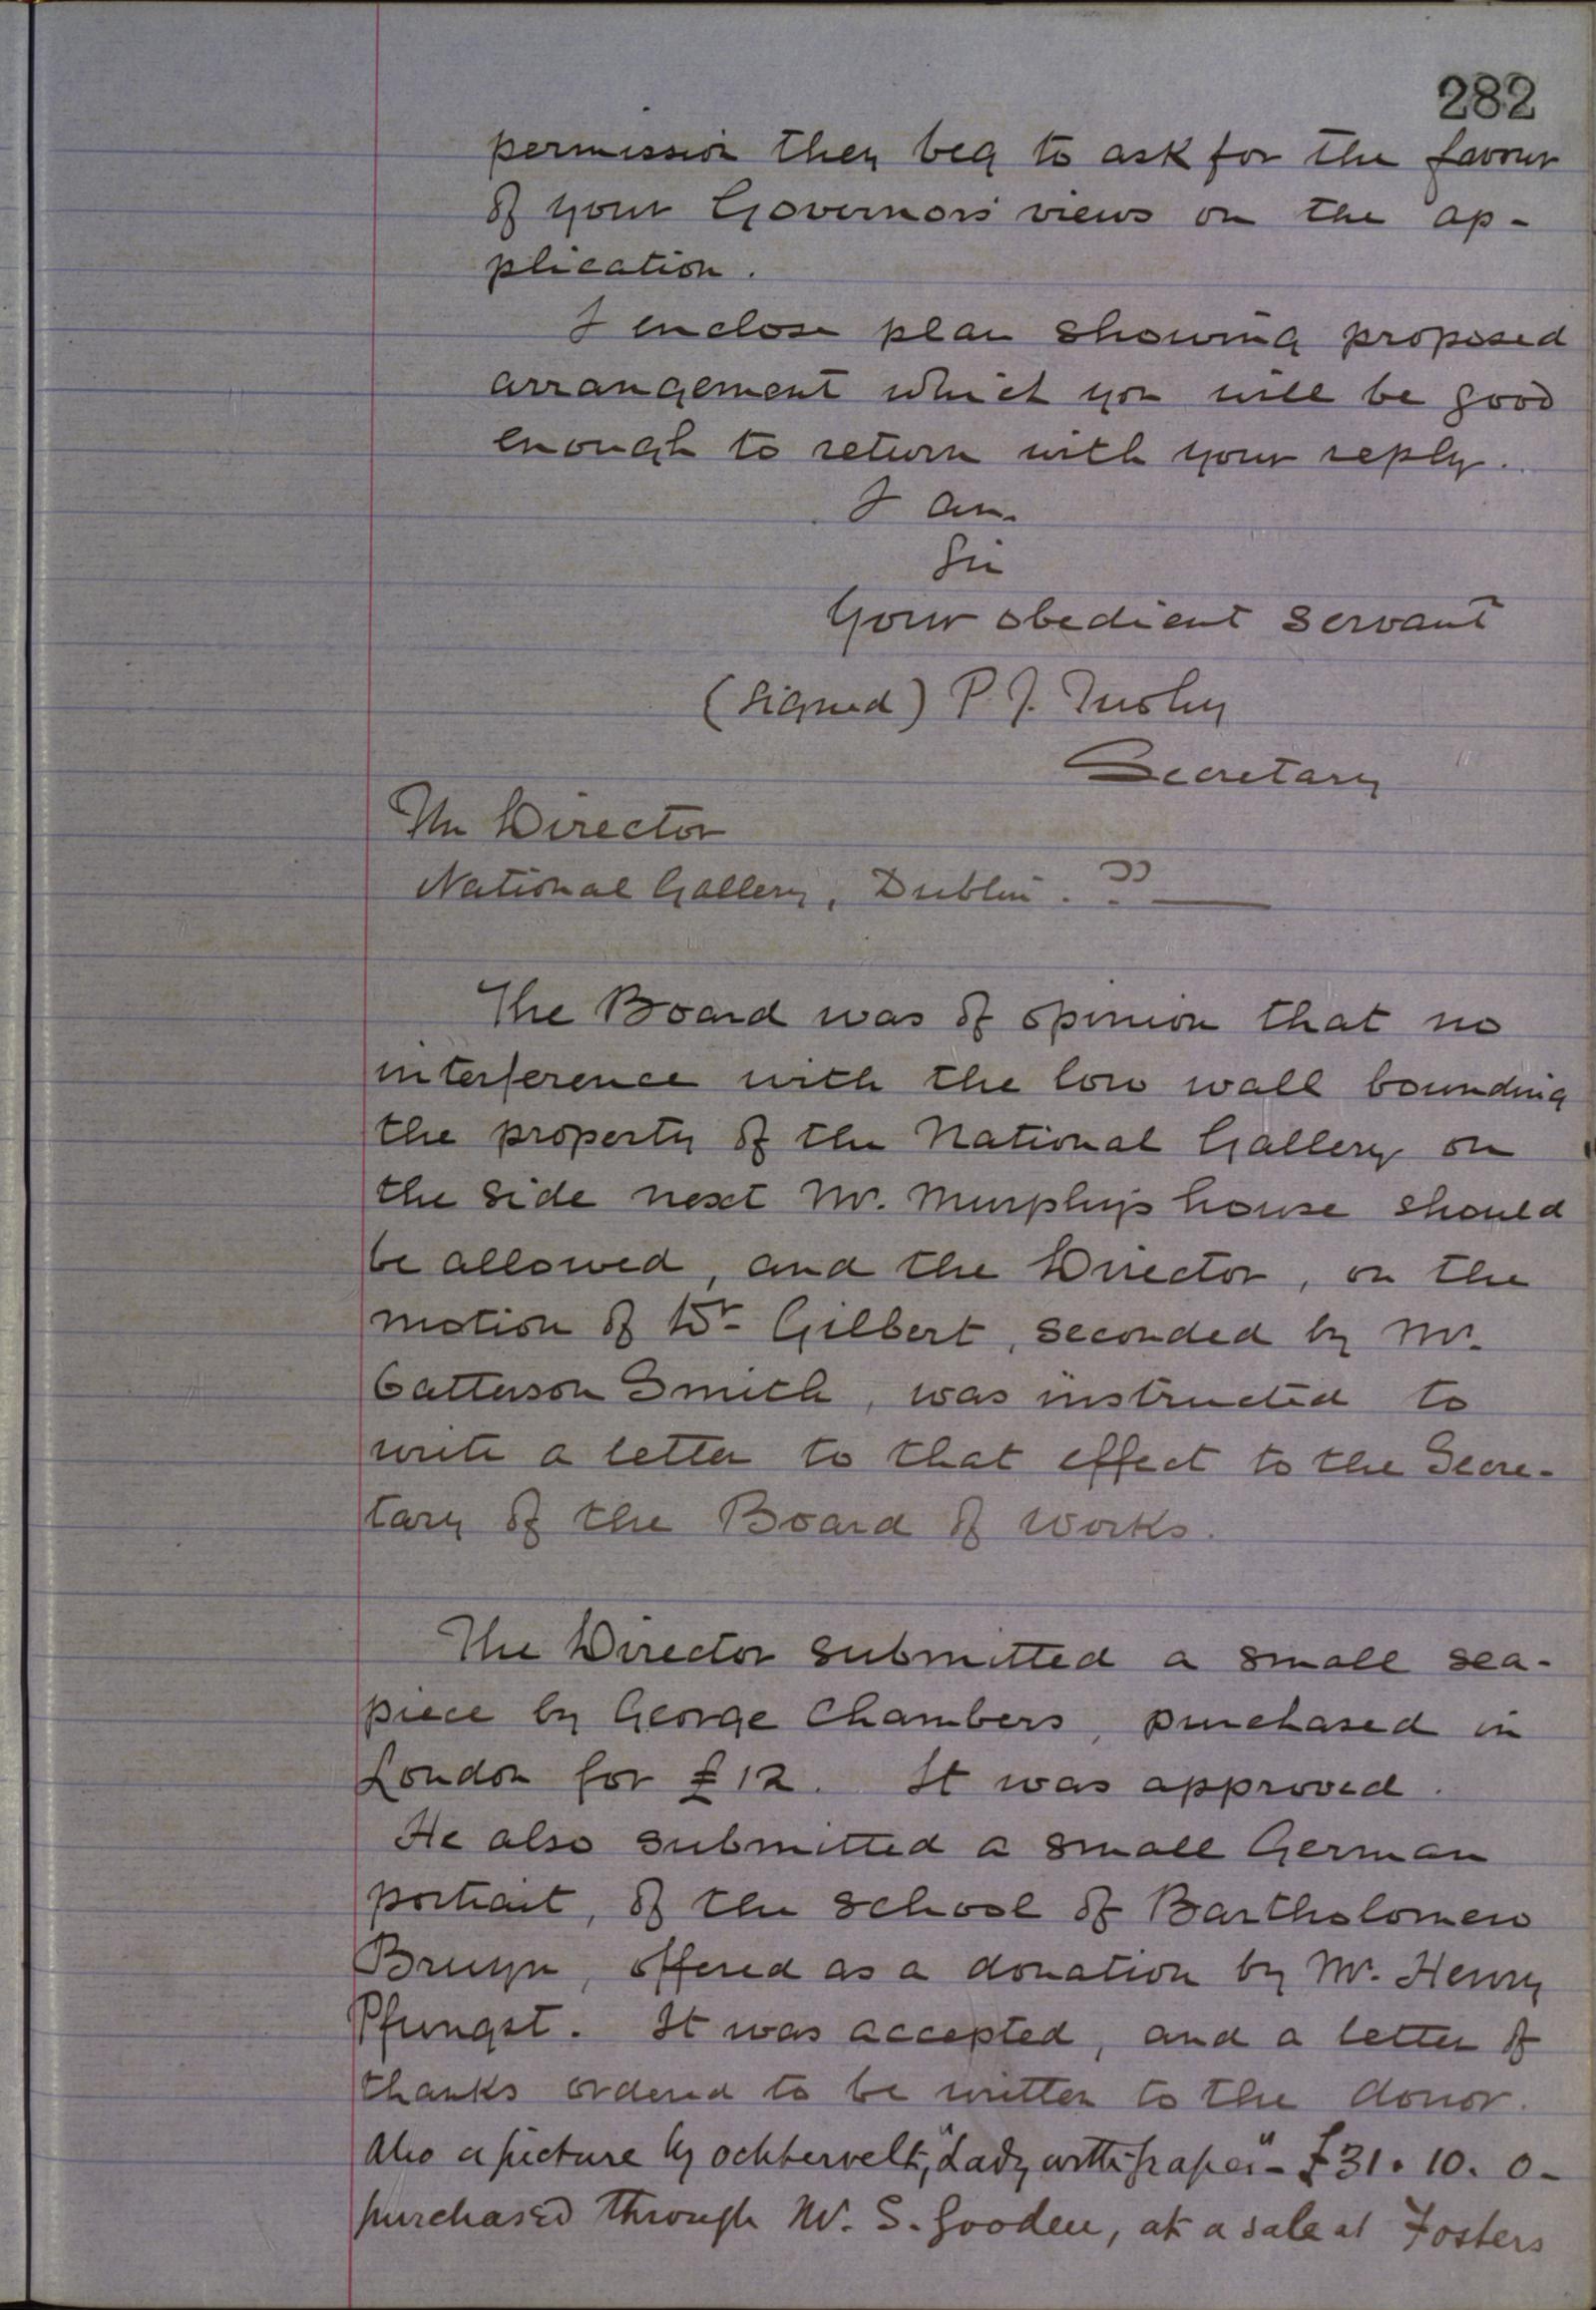 282
permission they beg to ask for the favour
of your Governors' views on the ap-
plication.
I enclose plan showing proposed
arrangement which you will be good
enough to return with your reply.
I am
Sir
Your obedient Servant
(Signed) P. J. Tuohy
Secretary
The Director
National Gallery, Dublin. "
The Board was of opinion that no
interference with the low wall bounding
the property of the National Gallery on
the side next Mr. Murphy's house should
be allowed, and the Director, on the
motion of Dr. Gilbert, seconded by Mr.
Catterson Smith, was instructed to
write a letter to that effect to the Secre-
tary of the Board of Works.
The Director submitted a small sea-
piece by George Chambers, purchased in
London for £12. It was approved.
He also submitted a small German
portrait, of the school of Bartholomew
Bruyn, offered as a donation by Mr. Henry
Pfungst. It was accepted, and a letter of
thanks ordered to be written to the donor.
Also a picture by Ochtervelt, "Lady with" - £31. 10. 0 -
purchased through W. S. Gooden, at a sale at Fosters